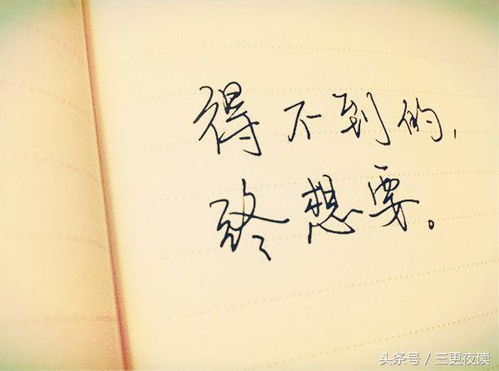 得不到的,
终想要。
头条号 / 三更夜读